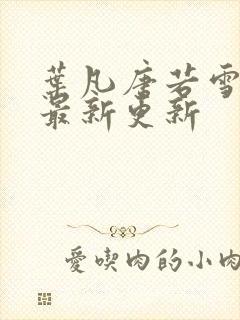 葉凡唐若雪
最新更新
愛喫肉的小肉